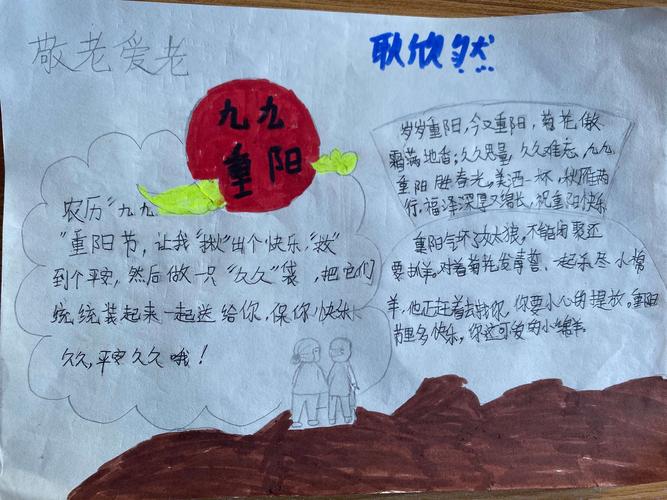 敬老爱老
耿欣然
九九
重阳
农历“九九
”重阳节，让我“揪”出个快乐，“救”
到个平安，然后做一只“久久”袋，把它们
统统装起来一起送给你，保你快乐
久久，平安久久哦！
岁岁重阳，今又重阳，菊花傲
霜满地香；久久思量，久久难忘，九九
重阳胜春光。美酒一杯，秋雁两
行，福泽深厚又绵长，祝重阳快乐
重阳气坏了灰太狼，不能团聚还
要抓羊。对着菊花发毒誓，
羊，他正赶着去找你，你要小心的提放。重阳
节里多快乐，你这可爱的小绵羊。